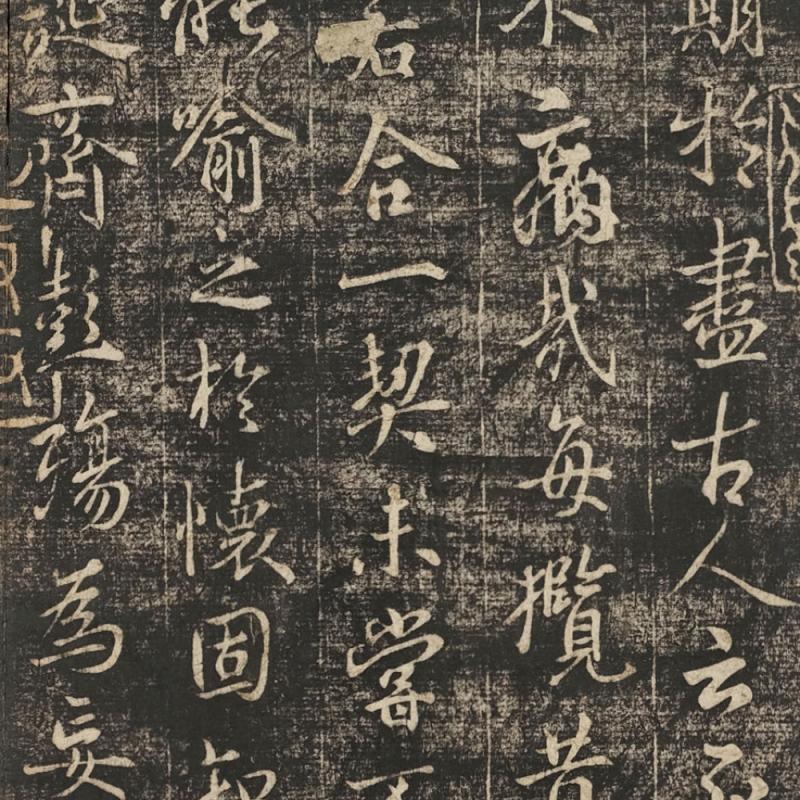 期於盡古人云死
不痛哉每攬昔
若合一契未嘗不
能喻之於懷固知
誕齊彭殤為妄